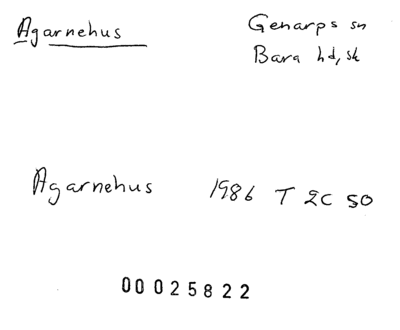 Agarnehus
Genarps sn
Bara hd, sk
Agarnehus 1986 T 2C SO
00025822